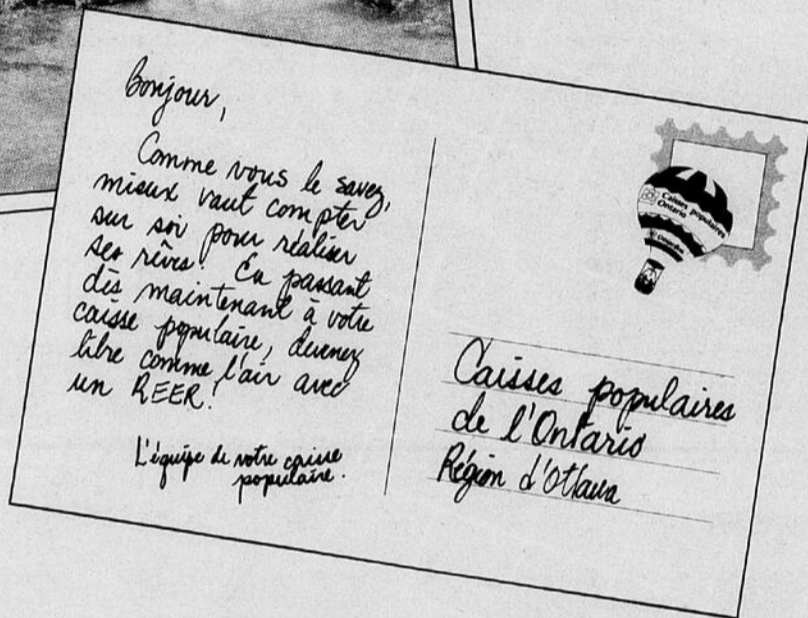 Bonjour,
Comme vous le savez,
mieux vaut compter
sur soi pour réaliser
ses rêves! En passant
dès maintenant à votre
caisse populaire, devenez
libre comme l'air avec
un REER!
L'équipe de votre caisse
populaire.
Caisses populaires
Ontario
Desjardins
Caisses populaires
de l'Ontario
Région d'Ottawa